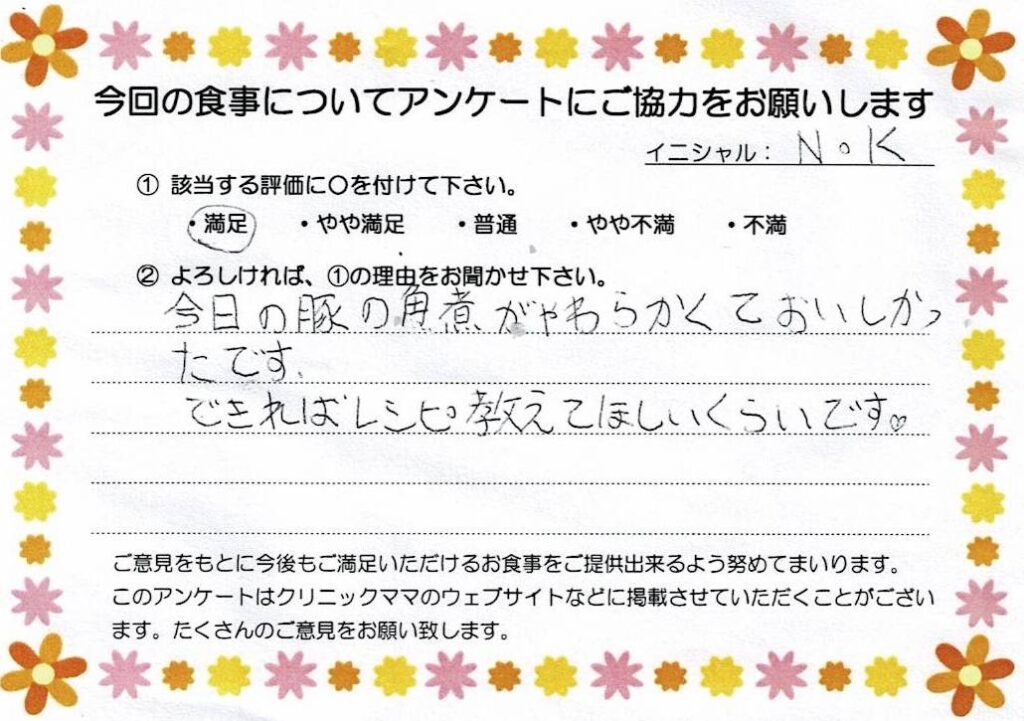 今回の食事についてアンケートにご協力をお願いします
イニシャル： N。K
① 該当する評価に〇を付けて下さい。
・満足 ・やや満足 ・普通 ・やや不満 ・不満
② よろしければ、①の理由をお聞かせ下さい。
今日の豚の角煮がやわらかくておいしかっ
たです.
できればレシピ教えてほしいくらいです♡
ご意見をもとに今後もご満足いただけるお食事をご提供出来るよう努めてまいります。
このアンケートはクリニックママのウェブサイトなどに掲載させていただくことがござい
ます。たくさんのご意見をお願い致します。